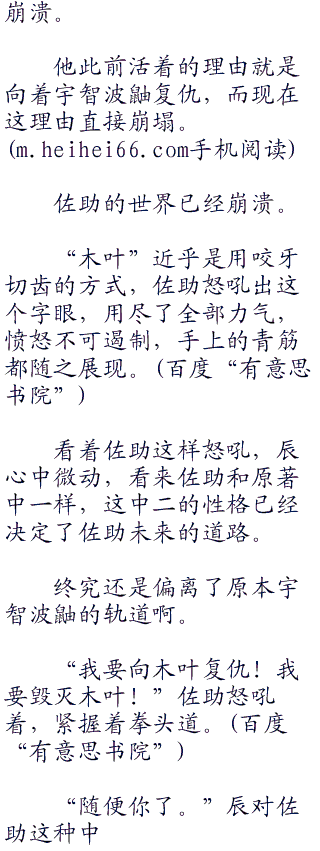 崩溃。
他此前活着的理由就是
向着宇智波鼬复仇，而现在
这理由直接崩塌。
(m.heihei66.com手机阅读)
佐助的世界已经崩溃。
“木叶”近乎是用咬牙
切齿的方式，佐助怒吼出这
个字眼，用尽了全部力气，
愤怒不可遏制，手上的青筋
都随之展现。(百度“有意思
书院”)
看着佐助这样怒吼，辰
心中微动，看来佐助和原著
中一样，这中二的性格已经
决定了佐助未来的道路。
终究还是偏离了原本宇
智波鼬的轨道啊。
“我要向木叶复仇！我
要毁灭木叶！”佐助怒吼
着，紧握着拳头道。(百度
“有意思书院”)
“随便你了。”辰对佐
助这种中